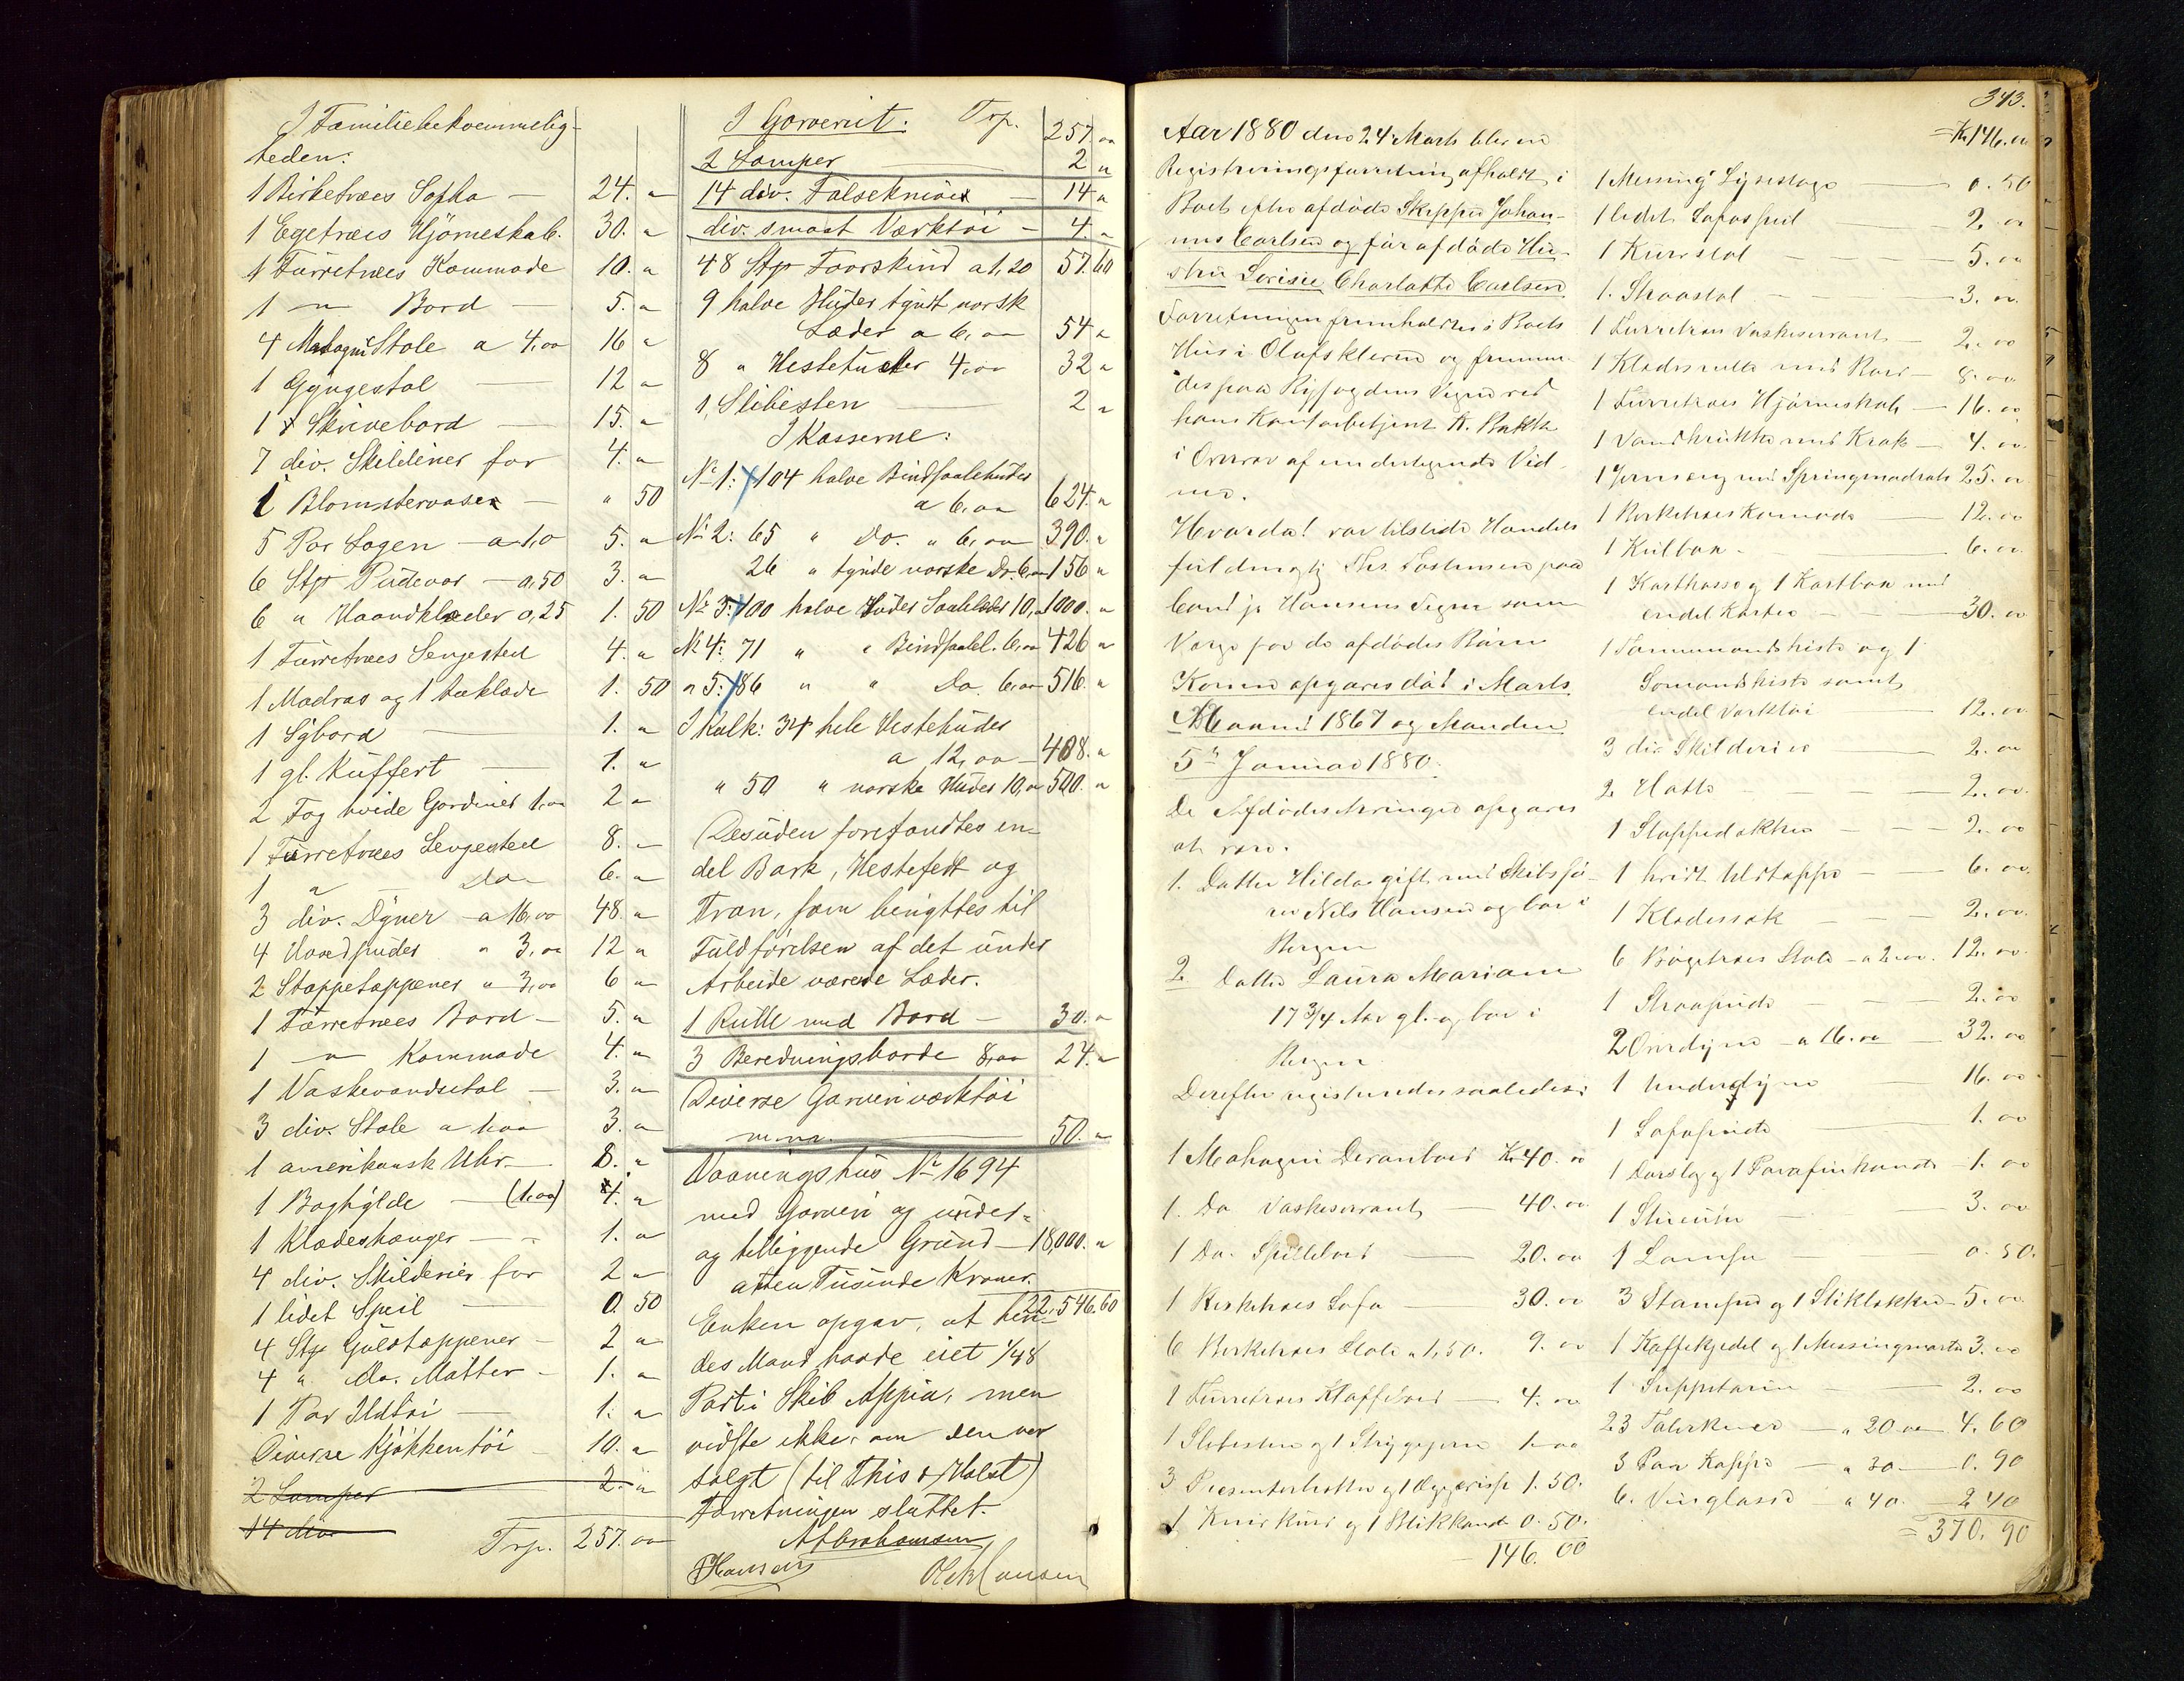 I Familiebekvemmelig-
heden:
1 Birketræes Sopha — 24. "
1 Egetræes Hjørneskab. 30. "
1 Furretræes Kommode 10. "
1 " Bord — 5. "
4 Mahogni Stole a 4,00 16 "
1 Gyngestol — 12 "
1 Skrivebord — 15. "
7 div. Skilderier for 4. "
1 Blomstervase — " 50
5 Par Lagen — a 1,0 5. "
6 Stp Pudevar — a,50 3. "
6 " Haandklæder 0,25 1. 50
1 Furretræes Sengested 4. "
1 Madras og 1 tæklæde 1. 50
1 Sybord — 1. "
1 gl. Kuffert — 1. "
2 Fag hvide Gardiner 1,00 2 "
1 Furretræes Sengested 8. "
1 " — Do — 6. "
3 div. Dyner — a 16,00 48. "
4 Hovedpuder " 3,00 12 "
2 Stoppetæppener " 3,00 6 "
1 Furretræes Bord — 5. "
1 — " Kommode 4. "
1 Vaskevandsstol — 3. "
3 div. Stole a 1,00 3. "
1 amerikansk Uhr — 8. "
1 Boghylde — (1,00) 4. "
1 Klædeshænger — 1. "
4 div. Skilderier for 2 "
1 lidet Speil — 0. 50
4 Stp Gulvtæppener — 2 "
4 " Do. Matter — 1. "
1 Par Ildtøi — 1. "
Diverse Kjøkkentøi — 10. "
2 Lamper — 2. "
14 div.
Trp. 257. 00
I Garveriet: Trp. 257 00
2 Lamper — 2 "
14 div. Falseknive — 14 "
div. smaat Værktøi — 4. "
48 Stp Faarskind a 1,20 57. 60
9 halve Huder tyndt norsk
Læder a 6,00 54 "
8 " Hestehuder 4,00 32 "
1 Slibesten — 2 "
I Kasserne:
No 1: 104 halve Bindsaalehuder
a 6,00 624. "
No 2: 65 " Do. " 6,00 390. "
26 " tynde norske Do. 6,00 156 "
No 3: 100 halve Huder Saalelæder 10,00 1000. "
No 4: 71 " " Bindsaalel. 6,00 426 "
" 5: 86 " " Do. 6,00 516. "
I Kalk: 34 hele Hestehuder
a 12,00 — 408. "
" 50 " norske Huder 10,00 500. "
Desuden forefandtes en-
del Bark, Hestefedt og
Tran, som benyttes til
Fuldførelsen af det under
Arbeide værende Læder.
1 Rulle med Bord — 30. "
3 Beredningsborde 8,00 24. "
Diverse Garveriværktøi
m.m. — 50. "
Vaaningshus No 1694
med Garveri og under-
og tilliggende Grund — 18,000. "
atten Tusinde Kroner.
22,546. 60
Enken opgav, at hen-
des Mand havde eiet 1/48
Part i Skib Appia, men
vidste ikke, om den var
solgt (til This & Holst)
Forretningen sluttet.
Abrahamsen
Hansen
343.
Aar 1880 den 24 Marts blev en
Registreringsforretning afholdt i
Boet efter afdøde Skipper Johan-
nes Carlsen og før afdøde Hu-
stru Lovise Charlotte Carlsen
Forretningen fremholdtes i Boets
Hus i Olafskleven og fremmø-
des paa Byfogdens Vegne ved
hans Kontorbetjent K. Bakke
i Overvær af undertegnede Vid-
ner.
Hvorda! var tilstede Handels
fuldmægtig Ths. Paa
Cand jr Hansens Vegne som
Værge for de afdødes Børn
Konen opgaves død i Marts
Maaned 1867 og Manden
5te Januar 1880.
De Afdødes Arvinger opgaves
at være.
1. Datter Hilda gift med Skibsfø-
rer Nils Hansen og bor i
Bergen
2 Datter Laura Mariane
17 3/4 Aar gl. og bor i
Bergen
Derefter registreredes saaledes:
1 Mahogni Divanbord Kr 40. 00
1. Do Vaskeservant — 40. 00
1 Do. Spillebord 20. 00
1 Birketræes Sofa — 30. 00
6 Birketræes Stole a 1,50. 9. 00
1 Furretræes Klaffebord — 4. 00
1 Slibesten og 1 Strygejern 1. 00
3 Presenterbretter og 1 1. 50.
1 og 1 Blikkande 0. 50.
146. 00
= Kr 146. 00
1 Messing Lysestage — 0. 50
1 lidet Sofaspeil — 2. 00
1 Kurvstol — 5. 00
1. Straastol — 3. 00
1 Furretræes Vaskeservant — 2. 00
1 Klædesrulle med Bord — 8. 00
1 Furretræes Hjørneskab — 16. 00
1 Vandkrukke med Krak — 4. 00
1 Jernseng med Springmadrats 25. 00
1 Birketræes Komode — 12. 00
1 Kulbox — 6. 00
1 Kartkasse og 1 Kartbox med
endel Karter — 30. 00
1 Tømmermandskiste og 1
Sømandskiste samt
endel Værktøi — 12. 00
3 div Skilderier — 2. 00
2 Hatte — 2. 00
1 Stoppedække — 2. 00
1 hvidt Uldtæppe — 6. 00
1 Klædessæk — 2. 00
6 Bøgetræes Stole — a 2.00. 12. 00
1 Straapude — 2. 00
2 Overdyner — a 16.00 — 32. 00
1 Underdyne — 16. 00
1 Sofapude — 1. 00
1 Dørslag og 1 Parafinkande — 1. 00
1 Stueuhr — 3. 00
1 Lampe — 0. 50.
3 Stamper og 1 Stiklakken — 5. 00
1 Kaffekjedel og 1 Messingmorter 3. 00
1 Suppeterrin — 2. 00
23 Talerkener — a 20 øre — 4. 60
3 Par Kopper — a 30 — 0. 90
6. Vinglasse — a 40. — 2 40
= 370. 90